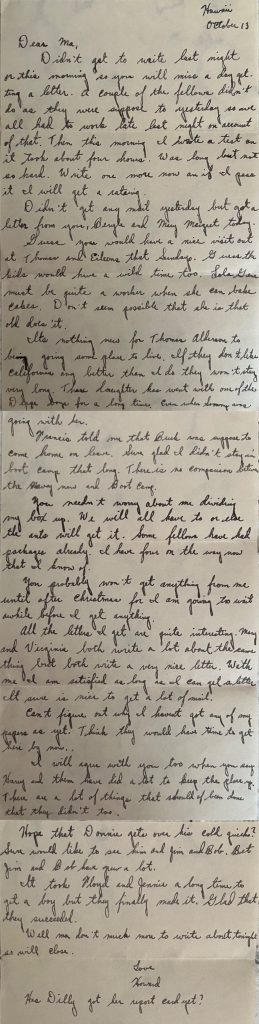 Hawaii
October 13
Dear Ma,
Didn't get to write last night
or this morning so you will miss a day get
ting a letter. A couple of the fellows didn't
do as they were suppose to yesterday so we
all had to work late last night on account
of that. Then this morning I wrote a test on
it took about four hours. Was long but not
so hard. Write one more now and if I pass
it I will get a rating.
Didn't get any mail yesterday but got a
letter from you, and Mary Margret today.
Guess you would have a nice visit out
at Thomas and Eileens that Sunday. Guess the
kids would have a wild time too. Lola Gene
must be quite a worker when she can bake
cakes. Don't seem possible that she is that
old does it.
Its nothing new for Thomas to
being going some place to live. If they don't like
California any better than I do they won't stay
very long. Those daughter has went with one of the
boys for a long time. Even when Sammy was
going with her.
Francis told me that was suppose to
come home on leave. Sure glad I didn't stay in
boot camp that long. There is no comparison between
the Navy now and Boot Camp.
You needn't worry about me dividing
my box up. We will all have to or else
the ants will get it. Some fellows have had
packages already. I have four on the way now
that I know of.
You probably won't get anything from me
until after Christmas for I am going to wait
awhile before I get anything.
All the letters I get are quite interesting. Mary
and Virginia both write a lot about the same
thing but both write a very nice letter. With
me I am satisfied as long as I can get a letter
It sure is nice to get a lot of mail.
Can't figure out why I havent got any of my
papers as yet. Think they would have time to get
here by now.
I will agree with you too when you say
Harry and them have did a lot to keep the place up.
There are a lot of things that should of been done
that they didn't too.
Hope that Donnie gets over his cold quick?
Sure would like to see him and Jim and Bob. Bet
Jim and Bob have grew a lot.
It took Floyd and Jennie a long time to
get a boy but they finally made it. Glad that
they succeeded.
Well ma don't much more to write about tonight
so will close.
Love
Howard
Has Dilly got her report card yet?